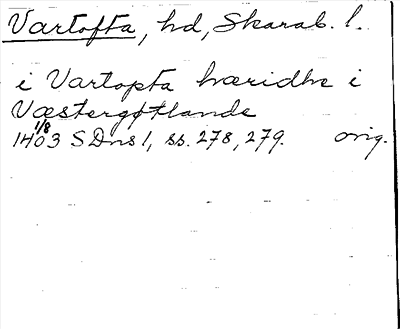 Vartofta, hd, Skarab. l.
i Vartopta hæridhe i
Væstergøtlande
1/8
1403 SDns 1, ss. 278, 279. orig.